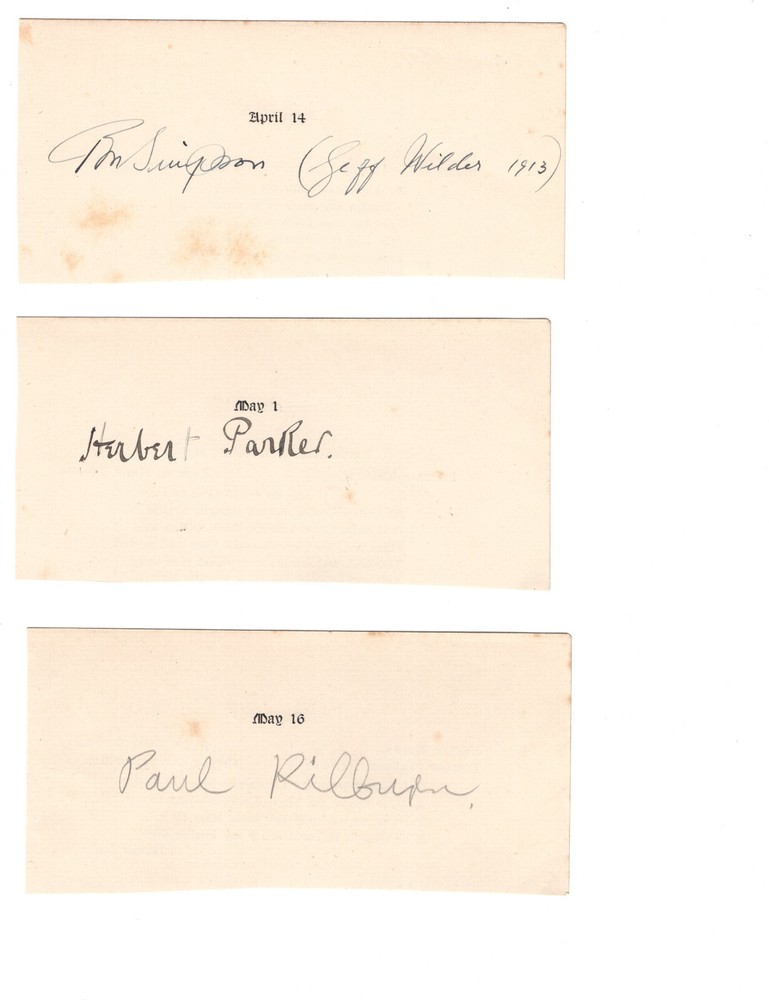 April 14
Simpson (Geff Wilder 1913)
May 1
Herbert Parker.
May 16
Paul Kilburn.